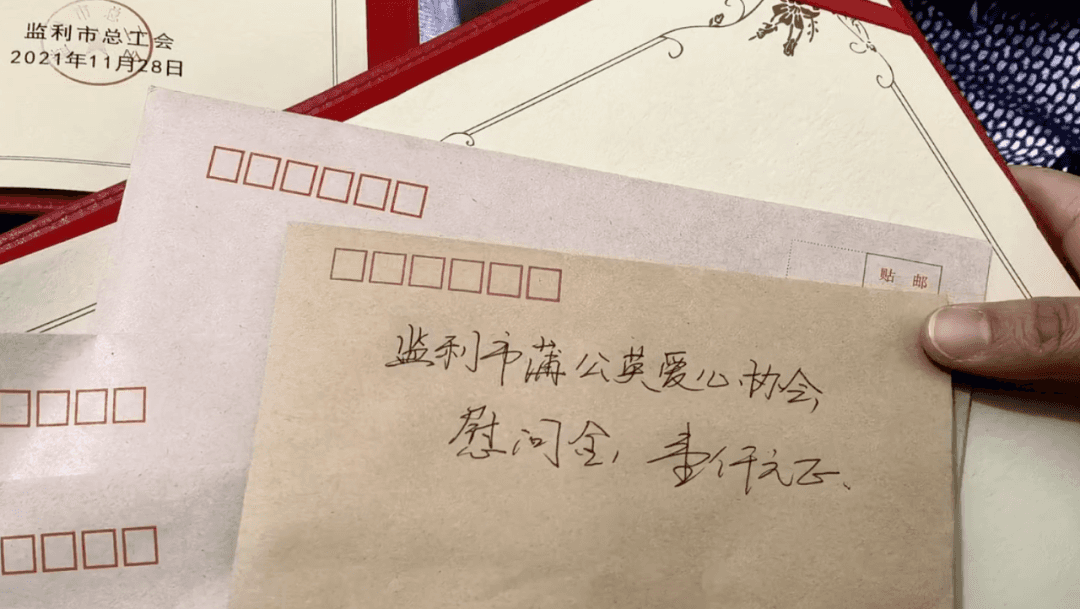 监利市总工会
2021年11月28日
贴 邮
监利市蒲公英爱心协会,
慰问金, 壹仟元正、